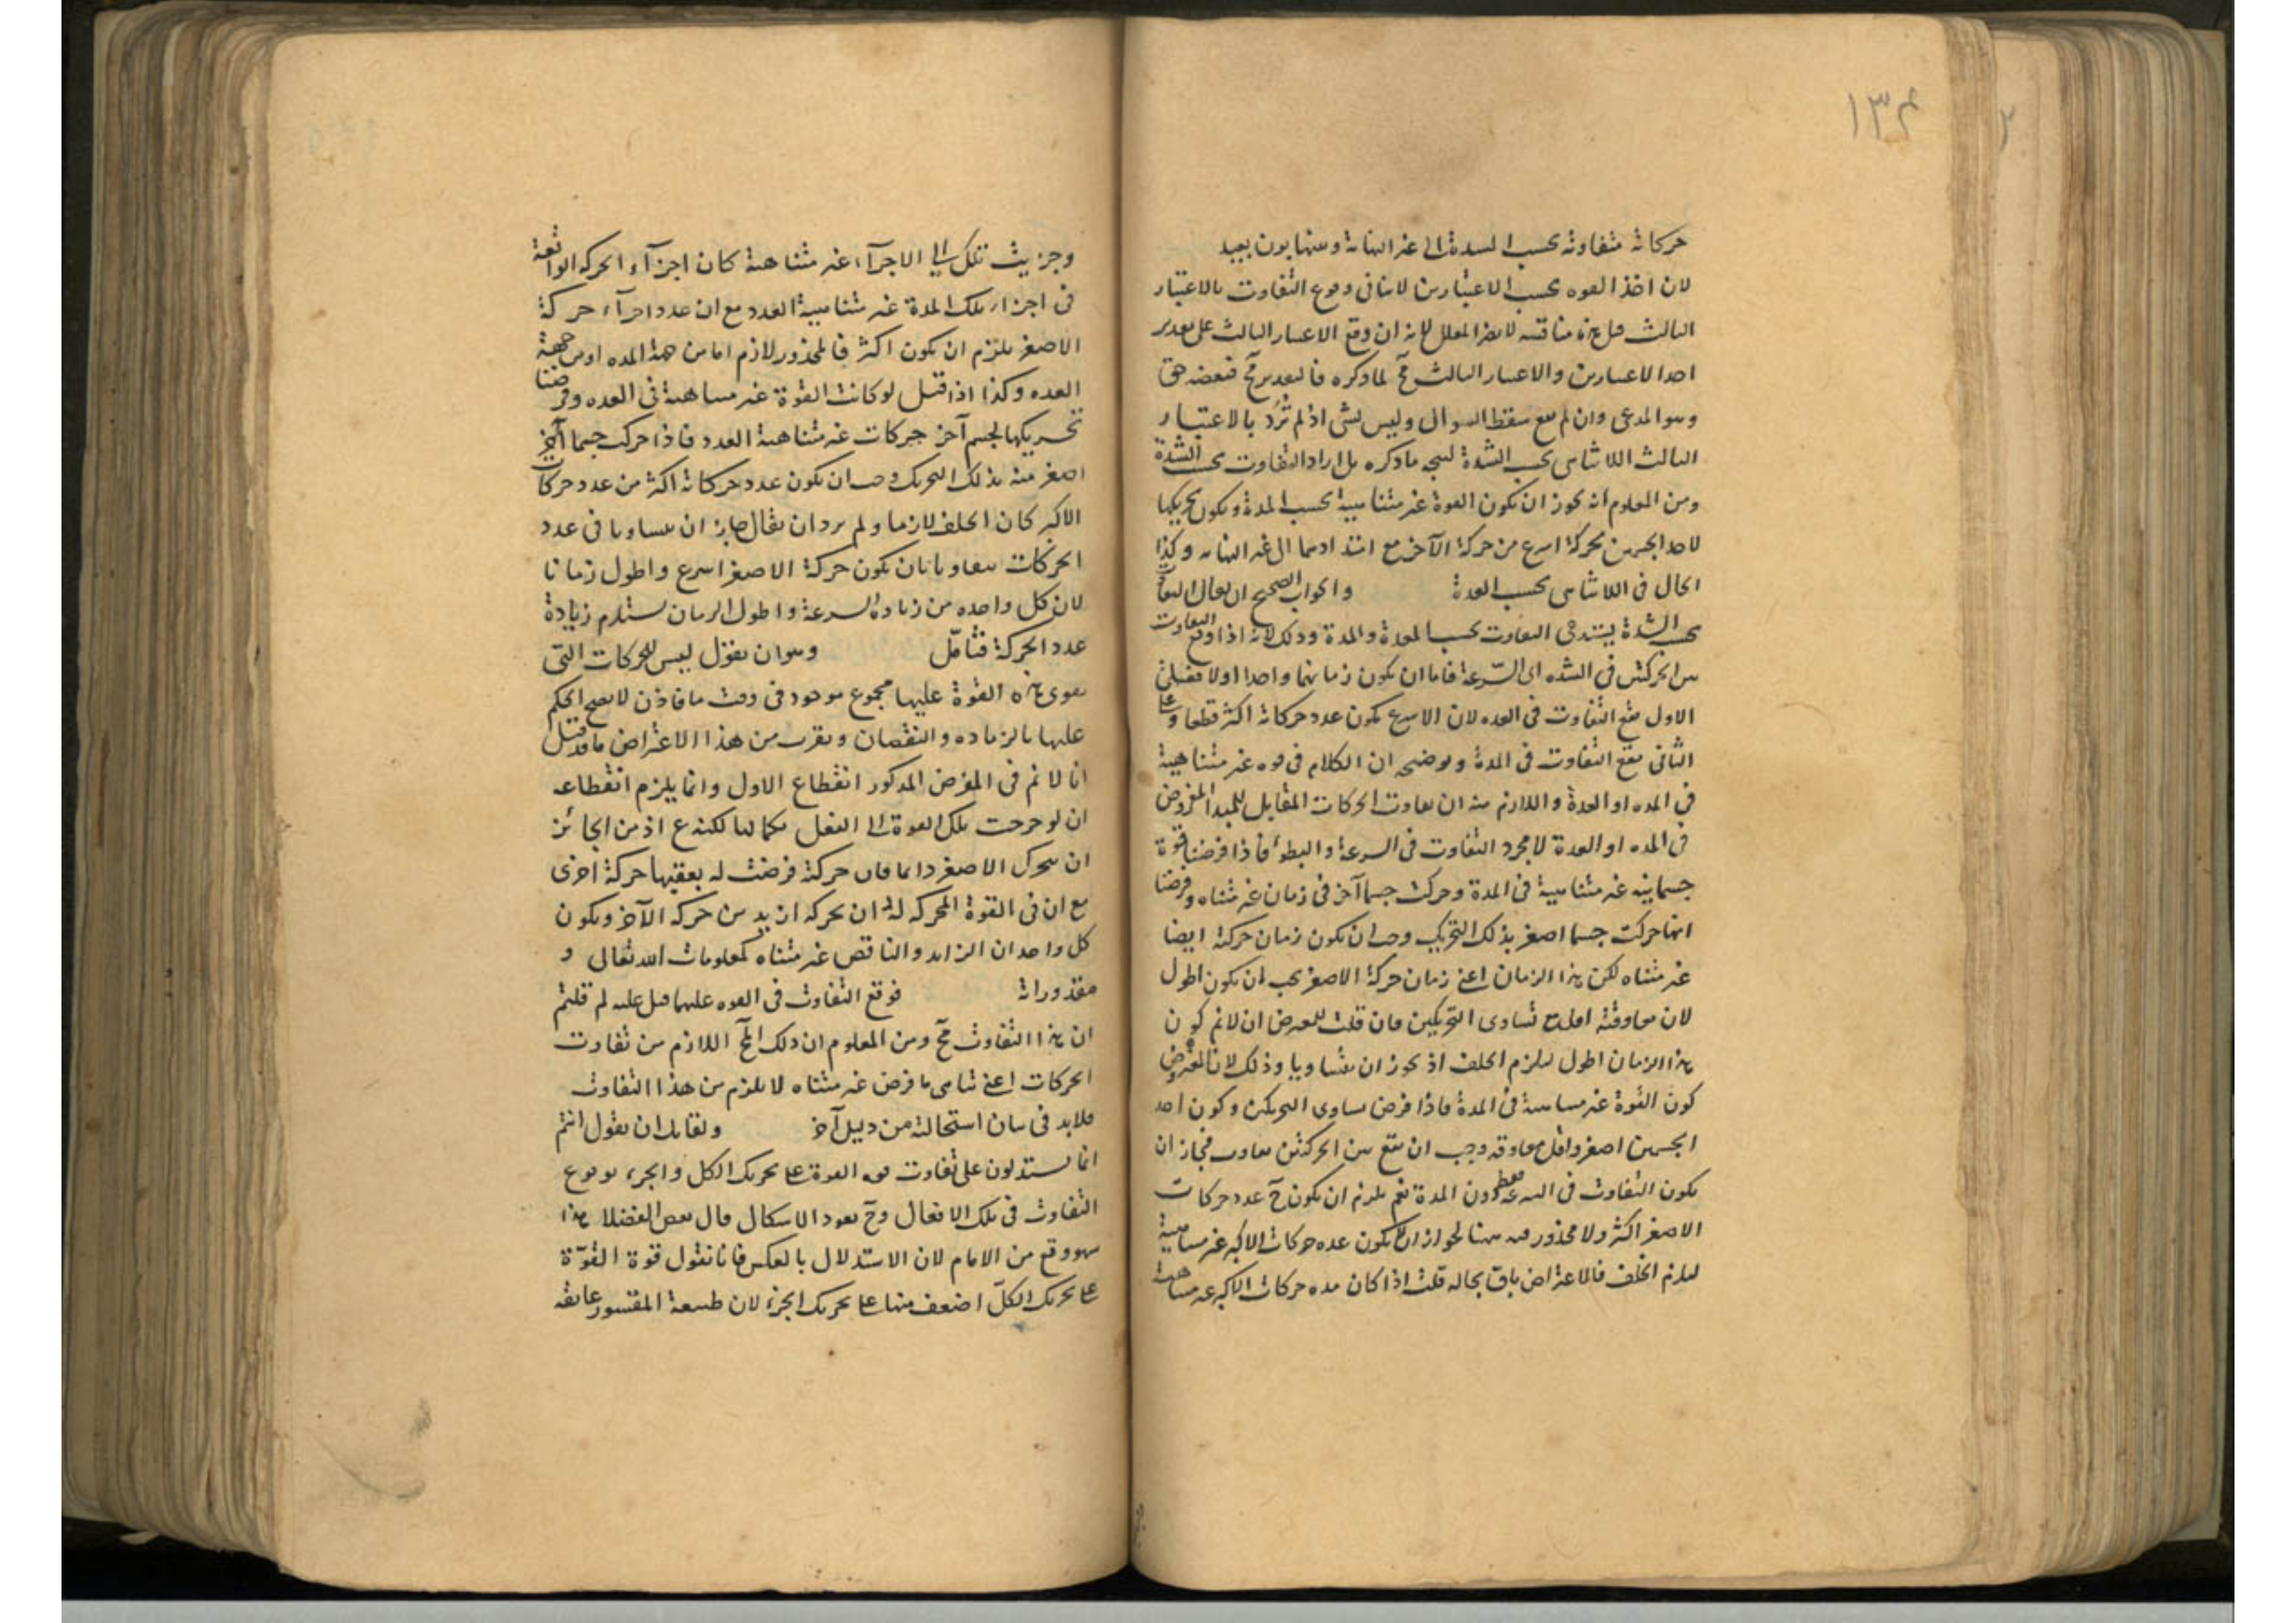 ١٣٤
حركاته متفاوته بحسب الشدة الى غير النهاية وبينهما بون بعيد
لان اخذ القوه بحسب الاعتبارين لا ينافى وقوع التفاوت بالاعتبار
الثالث قيل هذه مناقشه لا يضر المعلل لانه ان وقع الاعتبار الثالث على تقدير
احد الاعتبارين والاعتبار الثالث مح لما ذكره فالتقدير مح فنقيضه حق
وهو المدعى وان لم يقع سقط السوال وليس بشى اذ لم ترد بالاعتبار
الثالث اللاتناهى بحسب الشدة ليتجه ما ذكره بل اراد التفاوت بحسب الشدة
ومن المعلوم انه يجوز ان يكون القوة غير متناهية بحسب المدة ويكون تحريكها
لاحد الجسمين بحركة اسرع من حركة الآخر مع امتدادهما الى غير النهايه وكذا
الحال فى اللاتناهى بحسب العدة والجواب الصحيح ان يقال التفاوت
بحسب الشدة يستدعى التفاوت بحسب العدة والمدة وذلك لانه اذا وقع التفاوت
بين الحركتين فى الشده اى السّرعة فاما ان يكون زمانهما واحدا اولا فعلى
الاول يقع التفاوت فى العده لان الاسرع يكون عدد حركاته اكثر قطعا وعلى
الثانى يقع التفاوت فى المدة وتوضيحه ان الكلام فى قوه غير متناهية
فى المده او العدة واللازم منه ان تفاوت الحركات المقابل للمبدا المفروض
فى المده او العدة لا مجرد التفاوت فى السرعة والبطوء فاذا فرضنا قوة
جسمانيه غير متناهية فى المدة وحركت جسما آخر فى زمان غير متناه وفرضنا
انها حركت جسما اصغر بذلك التحريك وجب ان يكون زمان حركته ايضا
غير متناه لكن هذا الزمان اعنى زمان حركة الاصغر يجب ان يكون اطول
لان معاوقته اقل مع تساوى التحريكين فان قلت للمعترض ان لانم كون
هذا الزمان اطول ليلزم الخلف اذ يجوز ان يتساويا وذلك لان المفروض
كون القوة غير متناهية فى المدة فاذا فرض تساوى التحريكين وكون احد
الجسمين اصغر واقل معاوقه وجب ان يقع بين الحركتين تفاوت فجاز ان
يكون التفاوت فى السرعة فقط دون المدة نعم يلزم ان يكون ح عدد حركات
الاصغر اكثر ولا محذور فيه ههنا لجواز ان يكون عده حركات الاكبر غير متناهية
ليلزم الخلف فالاعتراض باق بحاله قلت اذا كان مده حركات الاكبر غير متناهية
وجزيت تلك الى الاجزآء غير متناهية كان اجزآء الحركه الواقعة
فى اجزاء تلك المدة غير متناهية العدد مع ان عدد اجزآء حركة
الاصغر يلزم ان يكون اكثر فالمحذور لازم اما من جهة المده او من جهة
العده وكذا اذا قيل لو كانت القوة غير متناهية فى العده وفرضنا
تحريكها لجسم آخر حركات غير متناهية العدد فاذا حركت جسما آخر
اصغر منه بذلك التحريك وجب ان يكون عدد حركاته اكثر من عدد حركات
الاكبر كان الخلف لازما ولم يرد ان يقال جاز ان يتساويا فى عدد
الحركات بان يكون حركة الاصغر اسرع واطول زمانا
لان كل واحده من زيادة السرعة واطول الزمان يستلزم زيادة
عدد الحركة فتأمّل وهو ان يقول ليس للحركات التى
يقوى هذه القوة عليها مجموع موجود فى وقت ما فاذن لا يصح الحكم
عليها بالزياده والنقصان ويقرب من هذا الاعتراض ما قد قيل
انا لا نم فى المفرض المذكور انقطاع الاول وانما يلزم انقطاعه
ان لو خرجت تلك القوة الى الفعل بكمالها لكنه ع اذ من الجائز
ان يتحرك الاصغر دائما فان حركة فرضت له يعقبها حركة اخرى
مع ان فى القوة المحركه له ان يحركه ازيد من حركه الآخر ويكون
كل واحد ان الزايد والناقص غير متناه كمعلومات الله تعالى و
مقدوراته فوقع التفاوت فى القوه عليها قيل عليه لم قلتم
ان هذا التفاوت مح ومن المعلوم ان ذلك المح اللازم من تفاوت
الحركات اعنى تناهى ما فرض غير متناه لا يلزم من هذا التفاوت
فلابد فى بيان استحالته من دليل آخر ولقايل ان يقول انتم
انما تستدلون على تفاوت قوه القوة على تحريك الكل والجزء بوقوع
التفاوت فى تلك الافعال وح يعود الاشكال قال بعض الفضلا هذا
سهو وقع من الامام لان الاستدلال بالعكس فانا نقول قوة القوّة
على تحريك الكلّ اضعف منها على تحريك الجزء لان طبيعة المقسور عايقه